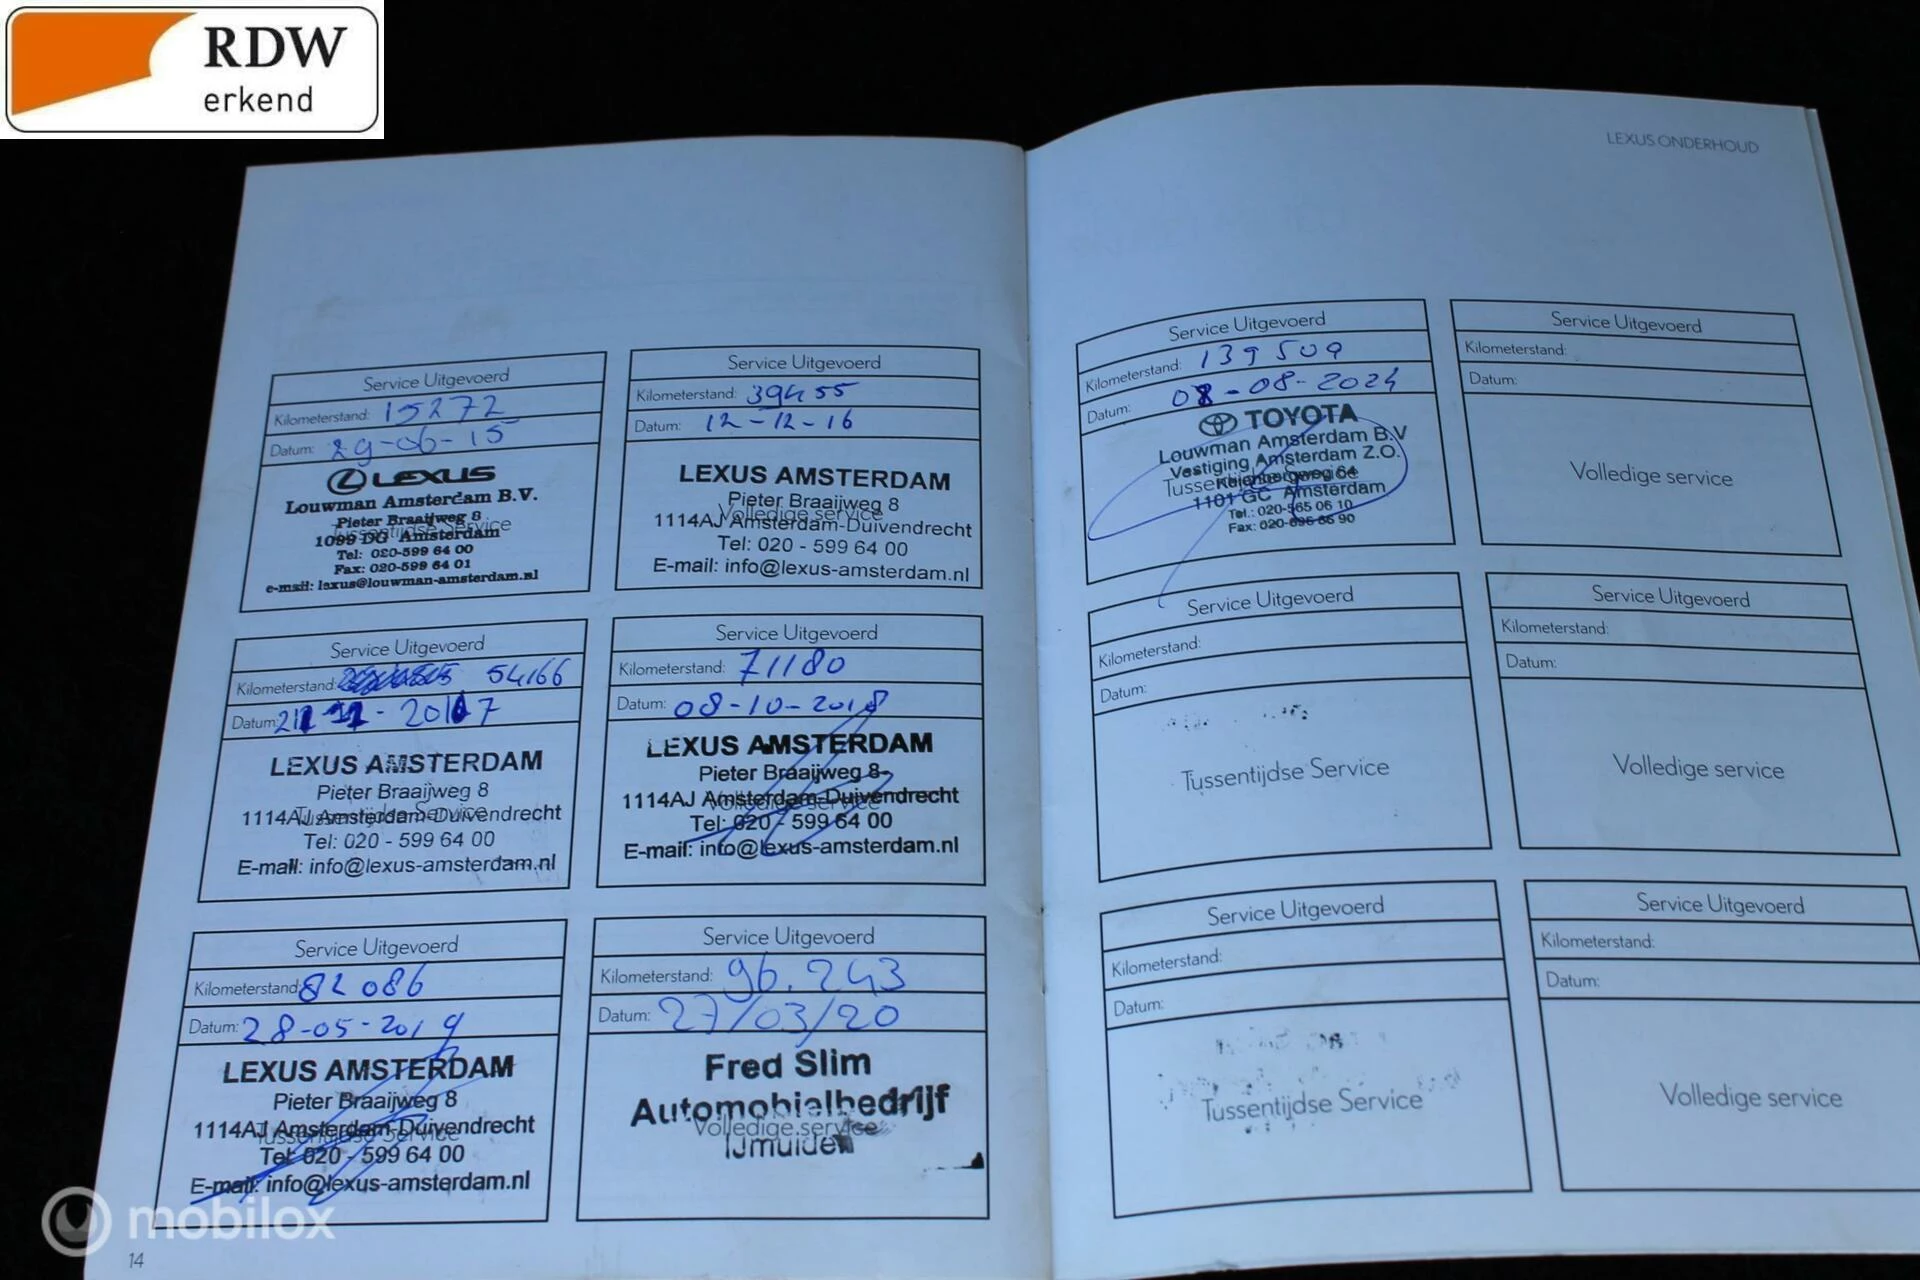 RDW
erkend
LEXUS ONDERHOUD
Service Uitgevoerd
Kilometerstand: 15272
Datum: 29-06-15
LEXUS
Louwman Amsterdam B.V.
Pieter Braaijweg 8
Tussentijdse Service
1099 DG Amsterdam
Tel: 020-599 64 00
Fax: 020-599 64 01
e-mail: lexus@louwman-amsterdam.nl
Service Uitgevoerd
Kilometerstand: 39455
Datum: 12-12-16
LEXUS AMSTERDAM
Pieter Braaijweg 8
Volledige service
1114AJ Amsterdam-Duivendrecht
Tel: 020 - 599 64 00
E-mail: info@lexus-amsterdam.nl
Service Uitgevoerd
Kilometerstand: 54166
Datum: 2017
LEXUS AMSTERDAM
Pieter Braaijweg 8
1114AJ Amsterdam-Duivendrecht
Tussentijdse Service
Tel: 020 - 599 64 00
E-mail: info@lexus-amsterdam.nl
Service Uitgevoerd
Kilometerstand: 71180
Datum: 08-10-2018
LEXUS AMSTERDAM
Pieter Braaijweg 8
1114AJ Amsterdam-Duivendrecht
Volledige service
Tel: 020 - 599 64 00
E-mail: info@lexus-amsterdam.nl
Service Uitgevoerd
Kilometerstand: 82086
Datum: 28-05-2019
LEXUS AMSTERDAM
Pieter Braaijweg 8
1114AJ Amsterdam-Duivendrecht
Tussentijdse Service
Tel: 020 - 599 64 00
E-mail: info@lexus-amsterdam.nl
Service Uitgevoerd
Kilometerstand: 96.243
Datum: 27/03/20
Fred Slim
Automobielbedrijf
Volledige service
IJmuiden
14
Service Uitgevoerd
Kilometerstand: 139509
Datum: 08-08-2024
TOYOTA
Louwman Amsterdam B.V
Vestiging Amsterdam Z.O.
Tussentijdse Service
Keienbergweg 64
1101 GC Amsterdam
Tel.: 020-565 06 10
Fax: 020-696 66 90
Service Uitgevoerd
Kilometerstand:
Datum:
Volledige service
Service Uitgevoerd
Kilometerstand:
Datum:
Tussentijdse Service
Service Uitgevoerd
Kilometerstand:
Datum:
Volledige service
Service Uitgevoerd
Kilometerstand:
Datum:
Tussentijdse Service
Service Uitgevoerd
Kilometerstand:
Datum:
Volledige service
mobilox